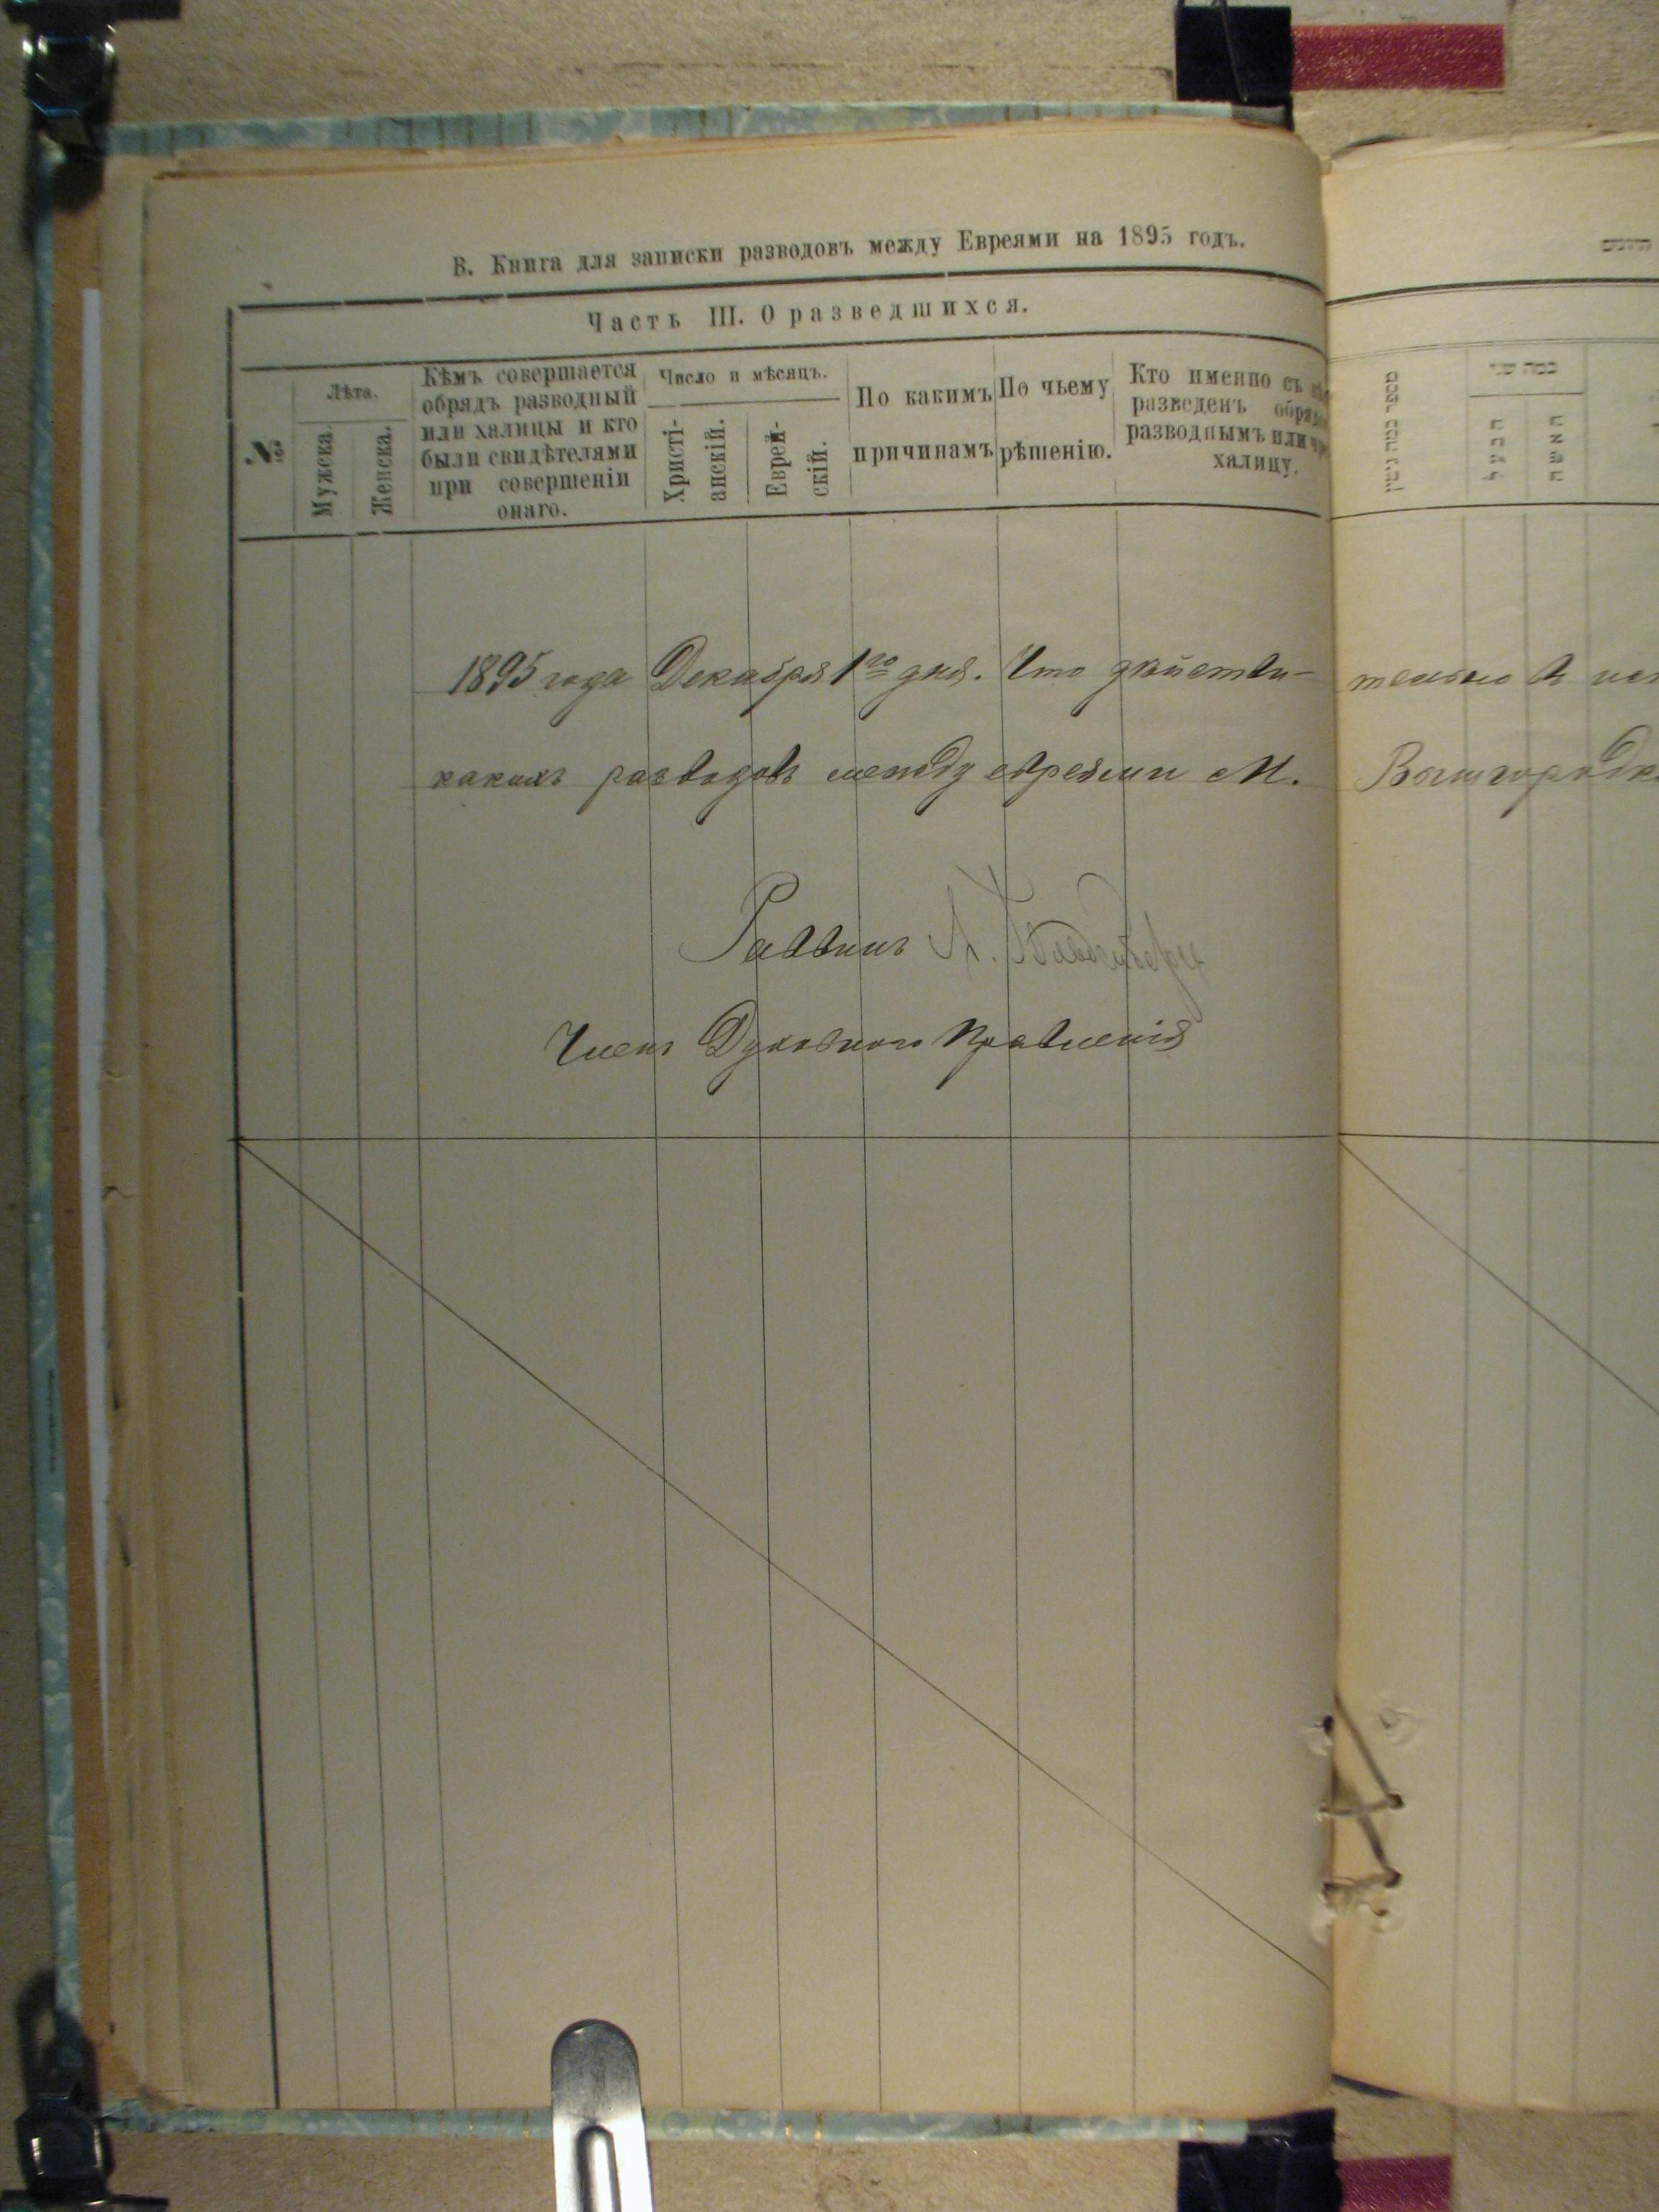 В. Книга для записки разводовъ между Евреями на 1895 годъ.
Часть III. О разведшихся.
№
Лѣта.
Мужеска.
Женска.
Кѣмъ совершается
обрядъ разводный
или халицы и кто
были свидѣтелями
при совершеніи
онаго.
Число и мѣсяцъ.
Христі-
анскій.
Еврей-
скій.
По какимъ
причинамъ
По чьему
рѣшенію.
Кто именно съ
разведенъ
разводнымъ или
халицу.
כמה שני
הבעל
האשה
1895 года Декабря 1го дня. Что дѣйстви- тельно в
какихъ разводовъ между евреями М. Вышгородк
Раввинъ
Членъ Духовного Правленія